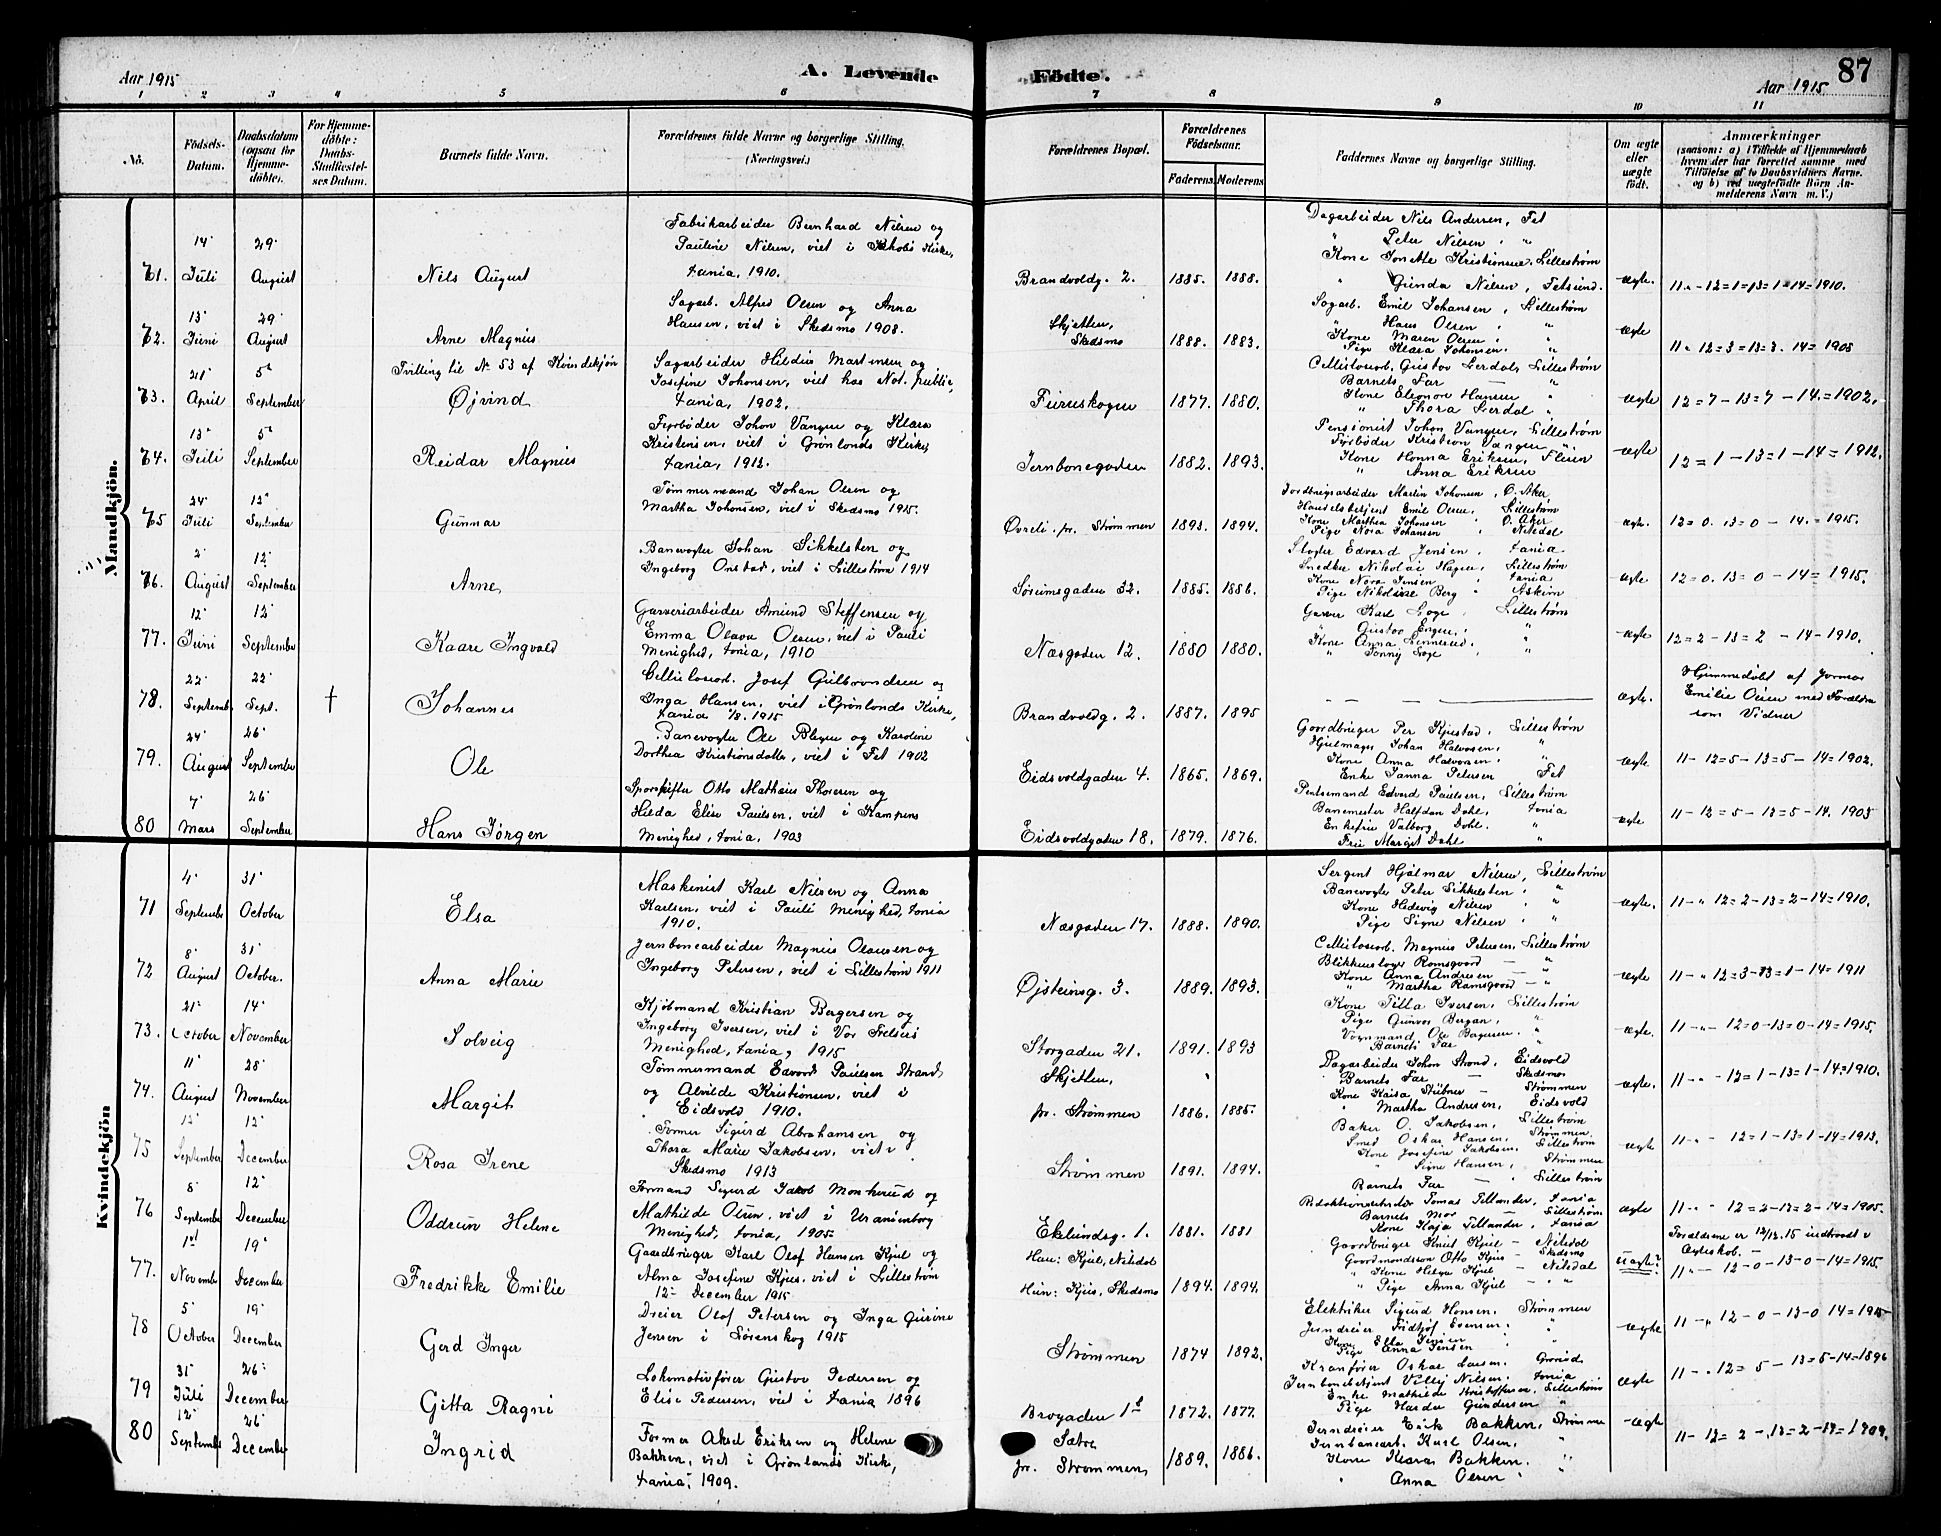 Aar 1915
A. Levende
Födte.
Aar 1915
87
1 2 3 4 5 6 7 8 9 10 11
No.
Födsels-Datum.
Daabsdatum (ogsaa for Hjemmedöbte).
For Hjemmedöbte: Daabs-Stadfæstelses Datum.
Barnets fulde Navn.
Forældrenes fulde Navne og borgerlige Stilling. (Næringsvei.)
Forældrenes Bopæl.
Forældrenes Födselsaar.
Faderens. Moderens.
Faddernes Navne og borgerlige Stilling.
Om ægte eller uægte födt.
Anmærkninger
(saasom: a) i Tilfælde af Hjemmedaab
hvem der har forrettet samme med
Tilföielse af to Daabsvidners Navne.
og b) ved uægtefödte Börn An-
melderens Navn m. V.)
Mandkjön.
71. 14' Juli 29' August Nils August
Fabrikarbeider Bernhard Nilsen og
Pauline Nilsen, viet i Jakobs Kirke,
Xania, 1910.
Brandvoldg. 2. 1885. 1888.
Dagarbeider Nils Andersen, Fet
" Peter Nilsen, "
Kone Jonette Kristiansen, Lillestrøm
" Gunda Nilsen, Fetsund.
ægte. 11 - 12=1=13=1=14=1910.
72. 13' Juni 29' August Arne Magnus
Sagarb. Alfred Olsen og Anna
Hansen, viet i Skedsmo 1908.
Skjetten, Skedsmo 1888. 1883.
Sagarb. Emil Johansen, Lillestrøm
" Hans Olsen, "
Kone Maren Olsen, "
Pige Klara Johansen, "
ægte 11 - 12=3=13=3. 14=1908
Tvilling til No 53 af Kvindekjøn
73. 21' April 5' September Øjvind
Sagarbeider Hildus Martinsen og
Josefine Johansen, viet hos Not. public,
Xania, 1902.
Furuskogen 1877. 1880.
Cellulosearb. Gustav Lerdal, Lillestrøm
Barnets Far — "
Kone Eleonore Hansen "
" Thora Lerdal "
ægte 12=7-13=7-14=1902.
74. 13' Juli 5' September Reidar Magnus
Fyrbøder Johan Vangen og Klara
Kristensen, viet i Grønlands Kirke,
Xania, 1912.
Jernbanegaden 1882. 1893.
Pensionist Johan Vangen, Lillestrøm
Fyrbøder Kristian Vangen "
Kone Hanna Eriksen,
" Anna Eriksen
ægte 12=1-13=1-14=1912.
75 24' Juli 12' September Gunnar
Tømmermand Johan Olsen og
Martha Johansen, viet i Skedsmo 1915.
Øvreli. pr. Strømmen 1893. 1894.
Jordbrugsarbeider Martin Johansen, Ø. Aker,
Handelsbetjent Emil Olsen, Lillestrøm
Kone Marthea Johansen Ø. Aker
Pige Nora Johansen Nitedal
ægt. 12=0. 13=0-14.=1915.
76. 2' August 12' September Arne,
Banevogter Johan Sikkelsten og
Ingeborg Onstad, viet i Lillestrøm 1914
Sørumsgaden 32. 1885. 1886.
Slagter Edvard Jensen, Xania
Snedker Nikolai Hagen, Lillestrøm
Kone Nora Jensen Xania
Pige Nikoline Berg Askim
ægte 12=0. 13=0-14=1915.
77. 12' Juni 12' September Kaare Ingvald
Garveriarbeider Amund Steffensen og
Emma Olava Olsen, viet i Pauli
Menighed, Xania, 1910
Næsgaden 12. 1880 1880.
Garver Karl Loge Lillestrøm
" Gustav Engen, "
Kone Anna Linnerud. "
" Jonny Loge "
ægte 12=2-13=2-14-1910.
78. 22' September 22' Sept. † Johannes
Cellulosearb. Josef Gulbrandsen og
Inga Hansen, viet i Grønlands Kirke,
Xania 1/8. 1915
Brandvoldg. 2. 1887. 1895
— — —
ægte. Hjemmedøbt af Jormor
Emilie Olsen med Forældre
som Vidner
79. 24' August 26' September Ole
Banevogter Ole Blegen og Karoline
Dorthea Kristiansdatter, viet i Fet 1902
Eidsvoldgaden 4. 1865. 1869.
Gaardbruger Per Kjustad, Lillestrøm
Hjulmager Johan Halvorsen, "
Kone Anna Halvorsen, "
Enke Janna Petersen Fet
ægte. 11-12=5-13=5-14=1902.
80 7' Mars 26' September Hans Jørgen
Sporskifter Otto Mathæus Thoresen og
Hilda Elise Paulsen, viet i Kampens
Menighed, Xania, 1903
Eidsvoldgaden 18. 1879. 1876.
Pudsemand Edvard Paulsen, Lillestrøm
Banemester Halfdan Dahl, Xania
Enkefru Valborg Dahl. "
Frk Margit Dahl "
ægte 11-12=5-13=5-14. 1903
Kvindekjön
71 4' September 31' October Elsa
Maskinist Karl Nilsen og Anna
Karlsen, viet i Pauli Menighed, Xania
1910.
Næsgaden 17. 1888. 1890.
Sergent Hjalmar Nilsen, Lillestrøm
Banevogter Peter Sikkelsten, "
Kone Hedevig Nilsen "
Pige Signe Nilsen "
ægte. 11-" 12=2-13=2-14=1910.
72 8' August 31' October. Anna Marie
Jernbanearbeider Magnus Olausen og
Ingeborg Petersen, viet i Lillestrøm 1911
Øjsteinsg. 3. 1889. 1893.
Cellulosearb. Magnus Petersen, Lillestrøm
Blikkenslager Ramsgaard — "
Kone Anna Andresen — "
" Martha Ramsgaard — "
ægte 11-" 12=3-13=1-14=1911
73. 21' October 14' November Solveig
Kjøbmand Kristian Bergersen og
Ingeborg Iversen, viet i Vor Frelsers
Menighed, Xania, 1915
Storgaden 21. 1891. 1893
Kone Tilla Iversen, Lillestrøm
Pige Gunvor Bergan, "
Vognmand Ole Bagersen. "
Barnets Far "
ægte. 11-"- 12=0-13=0-14=1915.
74. 11' August 28' November Margit
Tømmermand Edvard Paulsen Strand
og Alvilde Kristiansen, viet i
Eidsvold 1910.
Skjetten, pr. Strømmen 1886. 1885.
Dagarbeider Johan Strand, Eidsvold
Barnets Far — Skedsmo
Kone Kaisa Stübner — Strømmen
" Martha Andresen, Eidsvold
ægte. 11-"- 12=1-13=1-14=1910.
75 12' September 12' December Rosa Irene
Former Sigurd Abrahamsen og
Thora Marie Jakobsen, viet i
Skedsmo 1913
Strømmen 1891. 1894.
Baker O. Jakobsen, Lillestrøm
Smed Oskar Hansen, Strømmen
Kone Josefine Jakobsen, Lillestrøm
" Signe Hansen, Strømmen
ægte 11-"- 12=1-13=1-14=1913.
76 8' September 12' December Oddrun Helene
Formand Sigurd Jakob Monkerud og
Mathilde Olsen, viet i Uranienborg
Menighed, Xania, 1905
Eklundsg. 1. 1881. 1881
Barnets Far — Lillestrøm
Redaktionssekretær Tomas Tillander, Xania
Barnets Mor — Lillestrøm
Kone Kaja Tillander, Xania
ægte 11-"- 12=2-13=2-14=1905.
77. 1' November 19' December Fredrikke Emilie
Gaardbruger Karl Olaf Hansen Kjul og
Alma Josefine Kjus. viet i Lillestrøm
12' December 1915
Han: Kjul, Nitedal
Hun: Kjus, Skedsmo 1894. 1894.
Gaardbruger Knut Kjul — Nitedal
Gaardmandssøn Otto Kjus — Skedsmo
" Kone Helga Kjul — Nitedal
" Pige Anna Kjul — "
uægte? Forældrene er 12/12.15 indtraadt i
Ægteskab. —
11 "- 12-0-13-0-14=1915.
78 5' October 19' December Gerd Inger
Dreier Olaf Petersen og Inga Gurine
Jensen i Lørenskog 1915
Strømmen 1874 1892.
Elektriker Sigurd Hansen, Strømmen
Jerndreier Fridtjof Evensen, "
Kone Ella Jensen "
Pige Anna Jensen "
ægte 11-" 12-0-13-0 14=1915
79 31' Juli 26' December Gitta Ragni
Lokomotivfører Gustav Pedersen og
Elise Pedersen, viet i Xania 1896
Brogaden 1 1872. 1877.
Kranfører Oskar Larsen. Grorud
Jernbanebetjent Villy Nilsen. Xania
Enke Mathilde Kristoffersen. Lillestrøm
Pige Hardia Gundersen "
ægte 11-. 12=5-13=5-14-1896
80 12' September 26' December Ingrid
Former Aksel Eriksen og Helene
Bakken, viet i Grønlands Kirke,
Xania, 1909.
Sætre
pr. Strømmen, 1889. 1886.
Jerndreier Erik Bakken, Strømmen
Jernbanearb. Karl Olsen, "
Kone Klara Bakken, "
" Anna Olsen, "
ægte 11-12=2-13=2-14=1909.